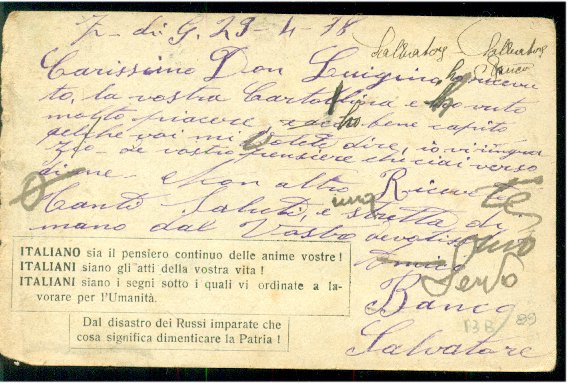 Z. di G. 29-4-18
Salvatore Salvatore
Banco
Carissimo Don Luigino, ho ricevu
to, la vostra Cartolina e ho avuto
molto piacere e ho bene capito
quelche voi mi volete dire, io vi ringra
zio del vostro pensiere che ciai verso
di me. E non altro Ricevete
tanti Saluti, e una stretta di
mano dal Vostro
Amico
suo
Servo
Banco
Salvatore
13B/99
ITALIANO sia il pensiero continuo delle anime vostre !
ITALIANI siano gli atti della vostra vita !
ITALIANI siano i segni sotto i quali vi ordinate a la-
vorare per l'Umanità.
Dal disastro dei Russi imparate che
cosa significa dimenticare la Patria !